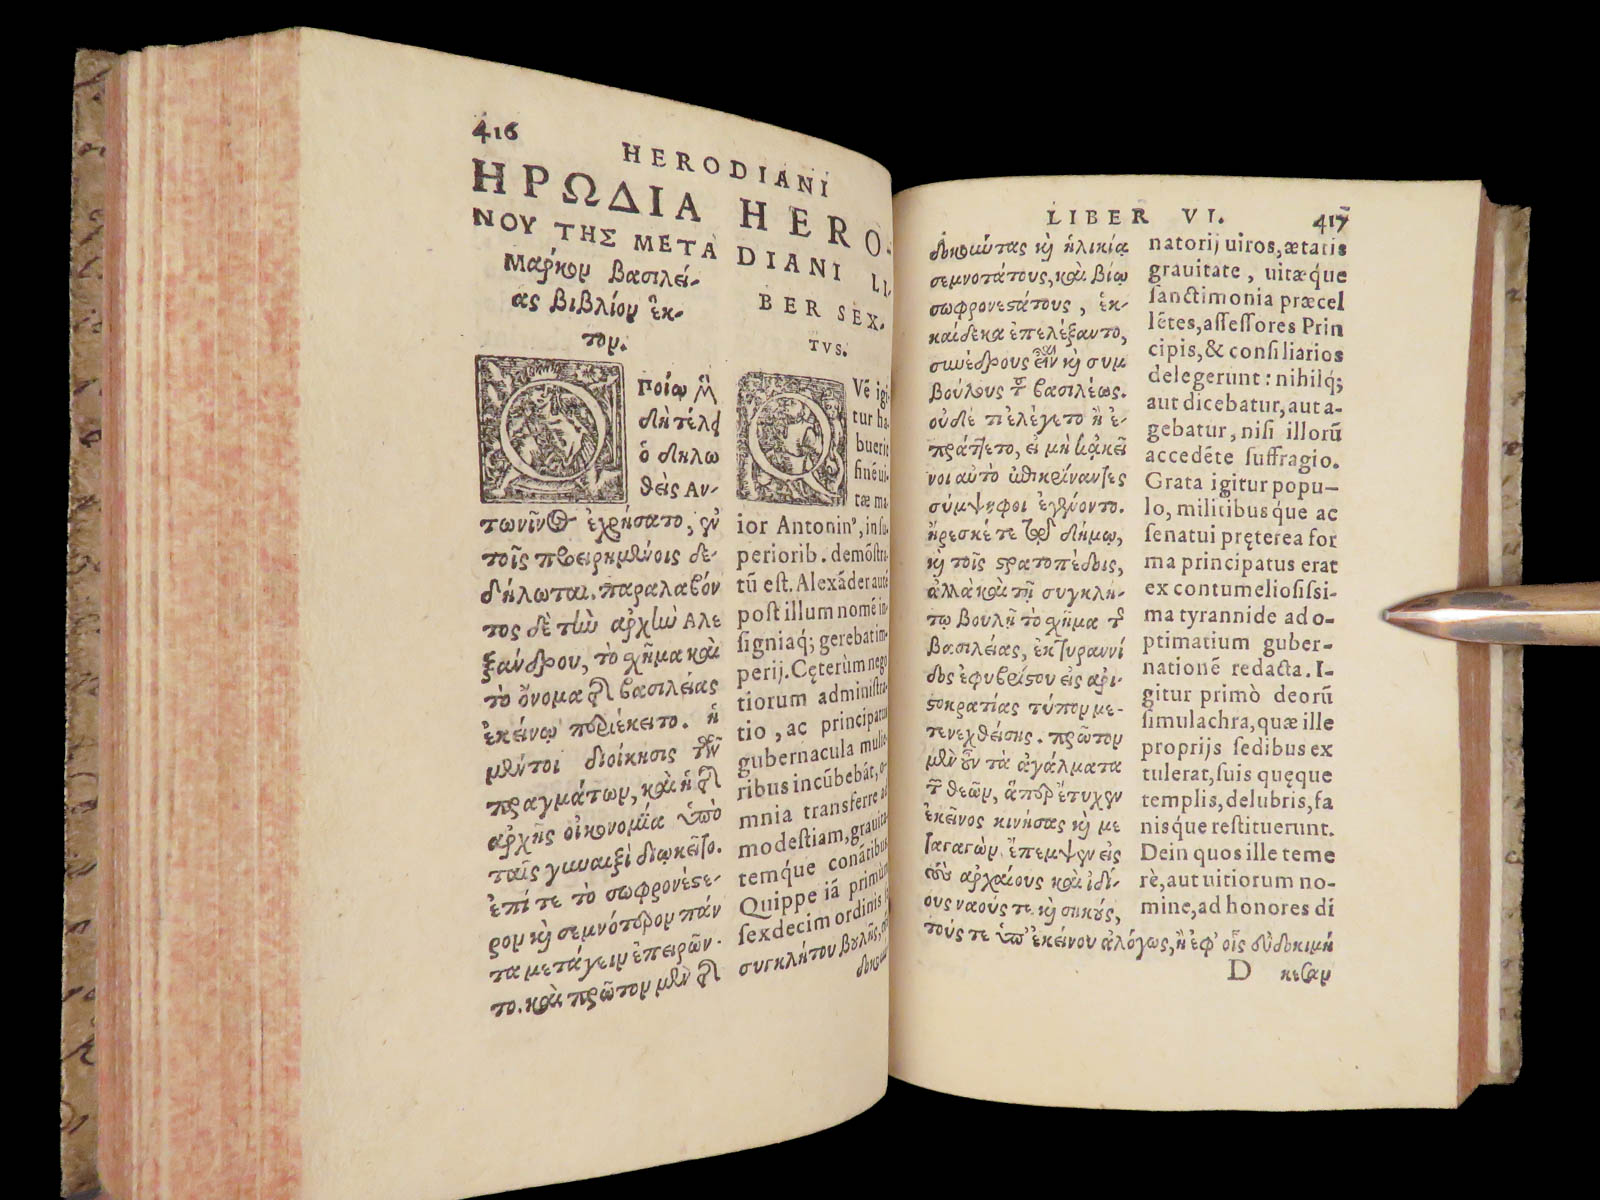 416
HERODIANI
ΗΡΩΔΙΑ
ΝΟΥ ΤΗΣ ΜΕΤΑ
Μάρκου βασιλεί-
ας βιβλίου ἕκ-
του.
Ο
ποίῳ
δὴ τέλ
ὁ δηλω
θεὶς Αν-
τωνῖνος ἐχρήσατο, ἐν
τοῖς προειρημένοις δε-
δήλωται. παραλαβόν
τος δὲ τὴν ἀρχὴν Αλε
ξάνδρου, τὸ χῆμα καὶ
τὸ ὄνομα τ βασιλείας
ἐκείνῳ περιέκειτο. ἡ
μέντοι διοίκησις τῶν
πραγμάτων, καὶ ἡ τ
ἀρχῆς οἰκονομία ὑπὸ
ταῖς γυναιξὶ διῳκεῖτο.
ἐπί τε τὸ σωφρονέστε-
ρον καὶ σεμνότερον πάν
τα μετάγειν ἐπειρῶν-
το. καὶ πρῶτον μὲν τ
HERO-
DIANI LI-
BER SEX-
TVS.
QVẽ igi
tur ha-
buerit
sinẽ ui-
tæ ma-
ior Antonin⁹, in su-
periorib. demõstra-
tũ est. Alexãder autẽ
post illum nomẽ in-
signiaq; gerebat im-
perij. Cęterùm nego
tiorum administra-
tio, ac principatus
gubernacula mulie-
ribus incũbebãt, o-
mnia transferre ad
modestiam, grauita-
temq́ue conãtibus
Quippe iã primùm
sexdecim ordinis
συγκλήτου βουλῆς,
LIBER VI.
417
δοκοῦντας καὶ ἡλικίᾳ
σεμνοτάτους, καὶ βίῳ
σωφρονεστάτους, ἑκ-
καίδεκα ἐπελέξαντο,
συνέδρους εἶναι καὶ συμ
βούλους τ βασιλέως.
οὐδέ τι ἐλέγετο ἢ ἐ-
πράττετο, εἰ μὴ κἀκεῖ
νοι αὐτὸ ἐπικρίναντες
σύμψηφοι ἐγένοντο.
ἤρεσκέ τε τῷ δήμῳ,
καὶ τοῖς στρατοπέδοις,
ἀλλὰ καὶ τῇ συγκλή-
τῳ βουλῇ τὸ χῆμα τ
βασιλείας, ἐκ τυραννί
δος ἐφυβρίστου εἰς ἀρι-
στοκρατίας τύπον με-
τενεχθείσης. πρῶτον
μὲν οὖν τὰ ἀγάλματα
τ θεῶν, ἅπερ ἔτυχεν
ἐκεῖνος κινήσας καὶ με
ταγαγὼν, ἔπεμψεν εἰς
τοὺς ἀρχαίους καὶ ἰδί-
ους ναούς τε καὶ σηκούς,
τούς τε ὑπ' ἐκείνου ἀλόγως, ἢ ἐφ' οἷς εὐδοκιμή
natorij uiros, ætatis
grauitate, uitæq́ue
sanctimonia præcel
lẽtes, assessores Prin
cipis, & consiliarios
delegerunt: nihilq́;
aut dicebatur, aut a-
gebatur, nisi illorũ
accedẽte suffragio.
Grata igitur popu-
lo, militibusq́ue ac
senatui pręterea for
ma principatus erat
ex contumeliosissi-
ma tyrannide ad o-
ptimatium guber-
nationẽ redacta. I-
gitur primò deorũ
simulachra, quæ ille
proprijs sedibus ex
tulerat, suis quęque
templis, delubris, fa
nisq́ue restituerunt.
Dein quos ille teme
rè, aut uitiorum no-
mine, ad honores di
D κεσαν